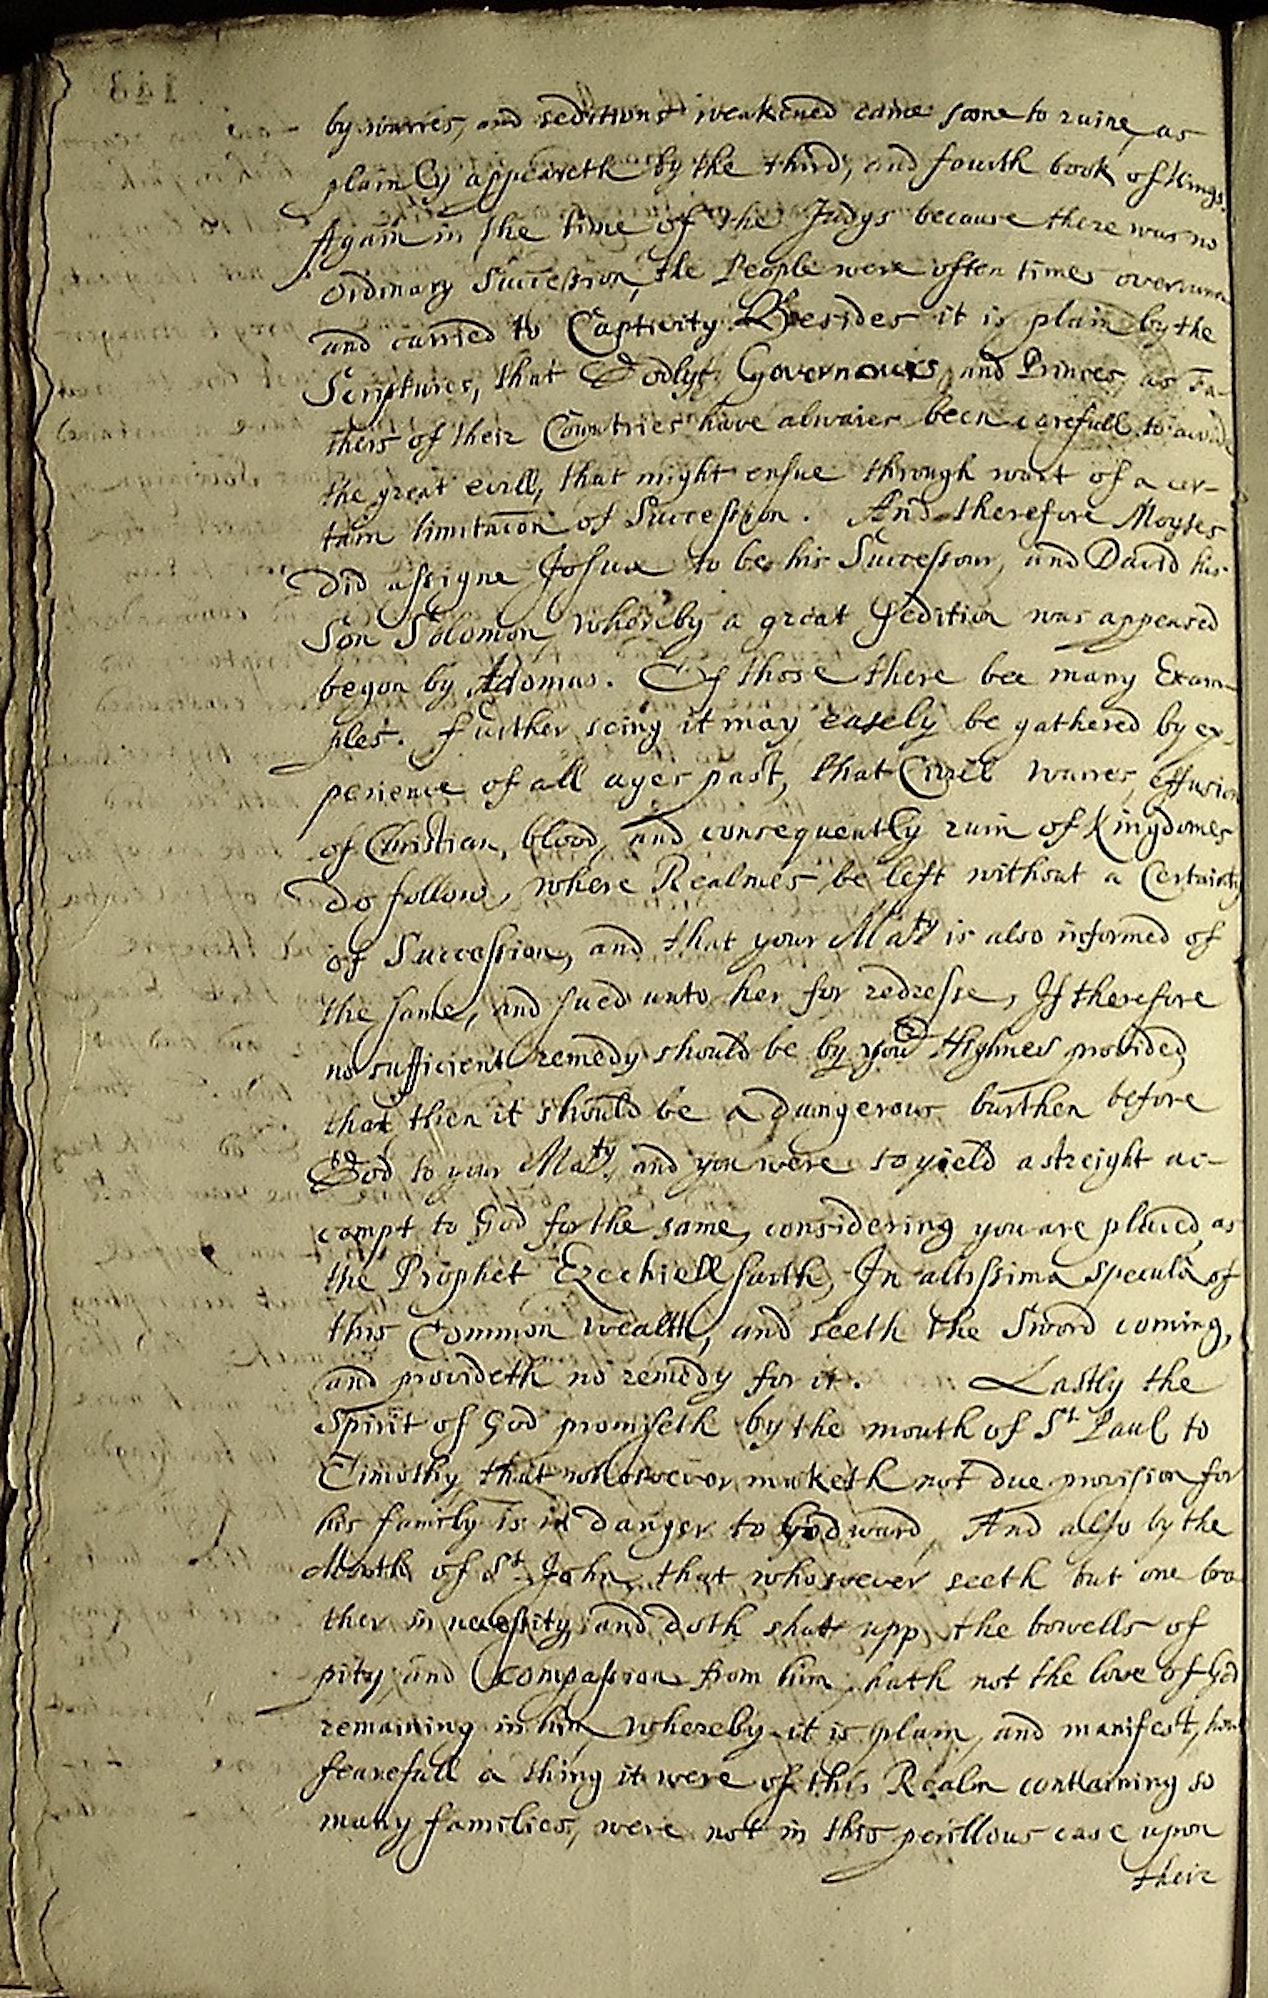 by warres, and seditions weakened came soone to ruine, as
plainly appeareth by the third, and fourth book of Kings.
Again in the time of the Judgs because there was no
Ordinary Succession, the People were often times overrunn
and carried to Captivity. Besides it is plain by the
Scriptures, that Godly Governours and Princes, as Fa-
thers of their Countries have alwaies been carefull to avoid
the great evill, that might ensue through want of a cer-
tain limitacon of Succession. And therefore Moyses
did assigne Josua to be his Successour, and David his
Son Solomon, whereby a great Sedition was appeased
begon by Adonias. Of those there bee many Exam-
ples. Further seing it may easely be gathered by ex-
perience of all ages past, that Civil warres, effusion
of Christian blood, and consequently ruin of Kingdomes
do follow, where Realmes be left without a Certainty
of Succession, and that your Maty is also informed of
the same, and sued unto her for redresse, If therefore
no sufficient remedy should be by your Highnes provided,
that then it should be a dangerous burthen before
God to your Maty, and you were to yield a streight ac-
compt to God for the same, considering you are placed, as
the Prophet Ezechiell saith, In altissima specula of
this Common wealth, and seeth the Sword coming,
and provideth no remedy for it. Lastly the
Spirit of God promiseth by the mouth of St Paul to
Timothy, that whosoever maketh not due provision for
his family is in danger to Godward, And also by the
Mouth of St John, that whosoever seeth but one bro
ther in necessity, and doth shutt upp the bowells of
pity, and Compassion from him, hath not the love of God
remaining in him, whereby it is plain, and manifest, how
fearefull a thing it were of this Realm containing so
many families, were not in this perillous case upon
their